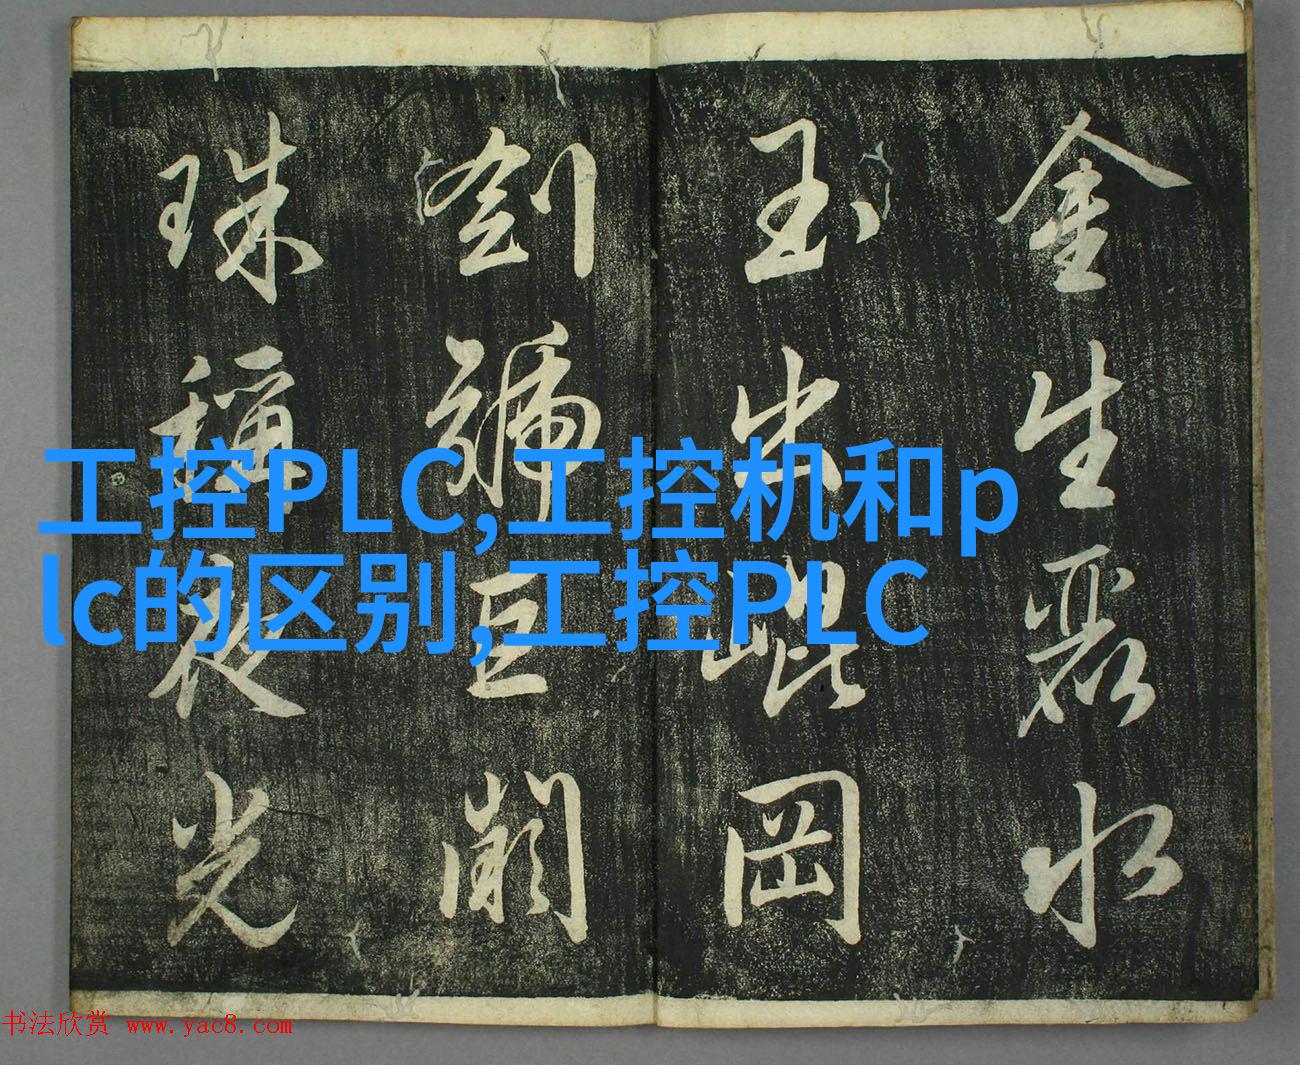 金生麗水
玉出崐岡
劍號巨闕
珠稱夜光
工控PLC,工控机和p
lc的区别,工控PLC
书法欣赏 www.yac8.com